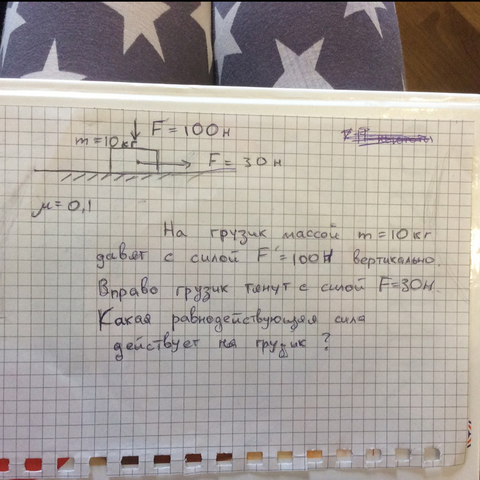 F = 100 н
m = 10 кг
F = 30 н
μ = 0,1
На грузик массой m = 10 кг
давят с силой F = 100 Н вертикально.
Вправо грузик тянут с силой F = 30 н.
Какая равнодействующая сила
действует на грузик ?